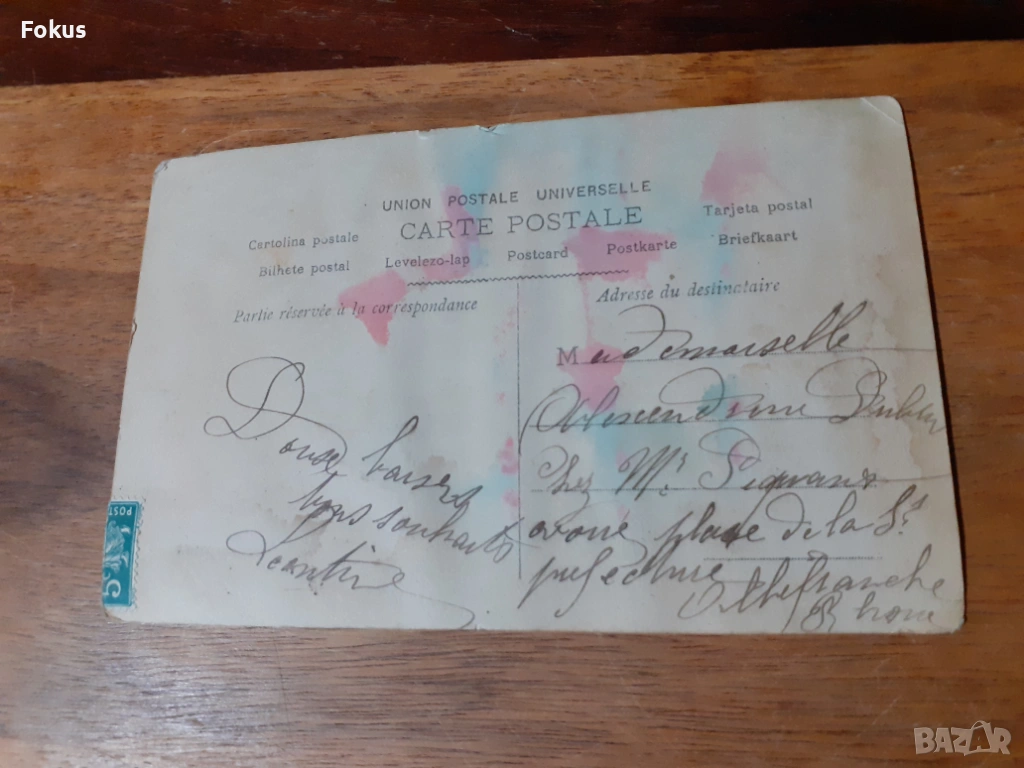 Fokus
UNION POSTALE UNIVERSELLE
CARTE POSTALE
Cartolina postale
Tarjeta postal
Bilhete postal Levelezo-lap Postcard Postkarte Briefkaart
Partie réservée à la correspondance
Adresse du destinataire
Douse baisers
bons souhaits
Léontine
Mademoiselle
chez Mr
avoué place de la S.
prefecture
Villefranche
Rhone
POST
5
BAZAR